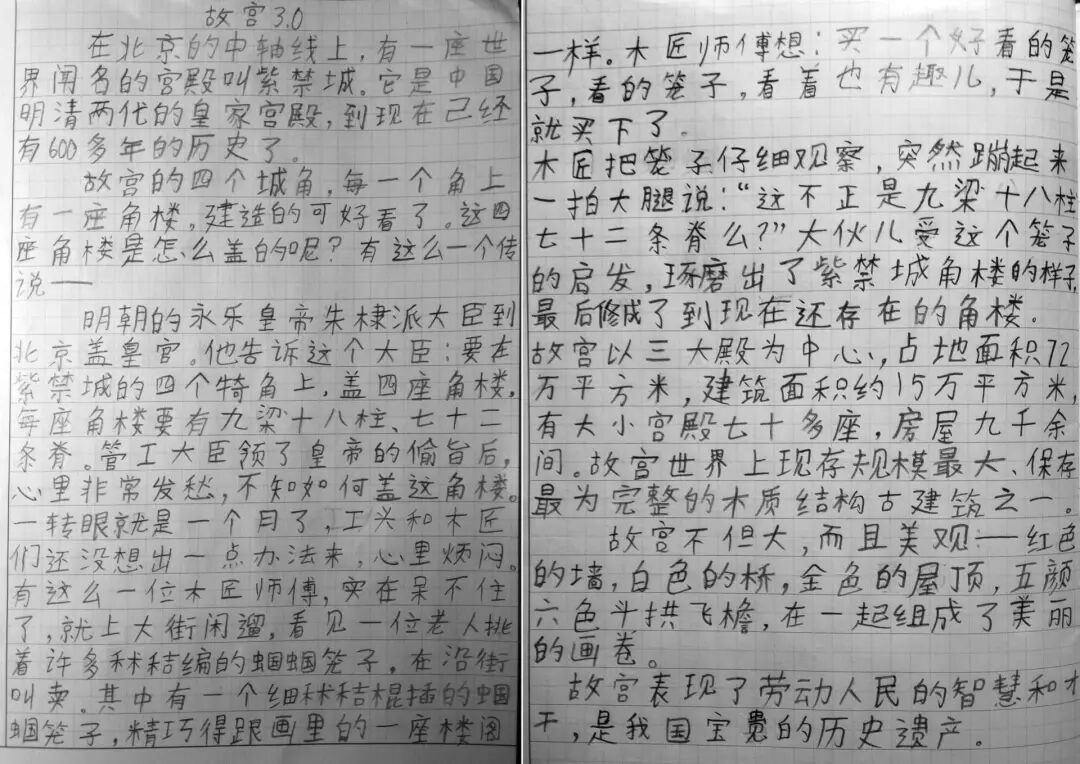 故宫3.0
在北京的中轴线上，有一座世
界闻名的宫殿叫紫禁城。它是中国
明清两代的皇家宫殿，到现在已经
有600多年的历史了。
故宫的四个城角，每一个角上
有一座角楼，建造的可好看了。这四
座角楼是怎么盖的呢？有这么一个传
说——
明朝的永乐皇帝朱棣派大臣到
北京盖皇宫。他告诉这个大臣：要在
紫禁城的四个犄角上，盖四座角楼，
每座角楼要有九梁十八柱、七十二
条脊。管工大臣领了皇帝的偷旨后，
心里非常发愁，不知如何盖这角楼。
一转眼就是一个月了，工头和木匠
们还没想出一点办法来，心里烦闷。
有这么一位木匠师傅，实在呆不住
了，就上大街闲遛，看见一位老人挑
着许多秫秸编的蝈蝈笼子，在沿街
叫卖。其中有一个细秫秸棍插的蝈
蝈笼子，精巧得跟画里的一座楼阁
一样。木匠师傅想：买一个好看的笼
子，看的笼子，看着也有趣儿，于是
就买下了。
木匠把笼子仔细观察，突然蹦起来
一拍大腿说：“这不正是九梁十八柱
七十二条脊么？”大伙儿受这个笼子
的启发，琢磨出了紫禁城角楼的样子，
最后修成了到现在还存在的角楼。
故宫以三大殿为中心，占地面积72
万平方米，建筑面积约15万平方米，
有大小宫殿七十多座，房屋九千余
间。故宫世界上现存规模最大、保存
最为完整的木质结构古建筑之一。
故宫不但大，而且美观：一红色
的墙，白色的桥，金色的屋顶，五颜
六色斗拱飞檐，在一起组成了美丽
的画卷。
故宫表现了劳动人民的智慧和才
干，是我国宝贵的历史遗产。